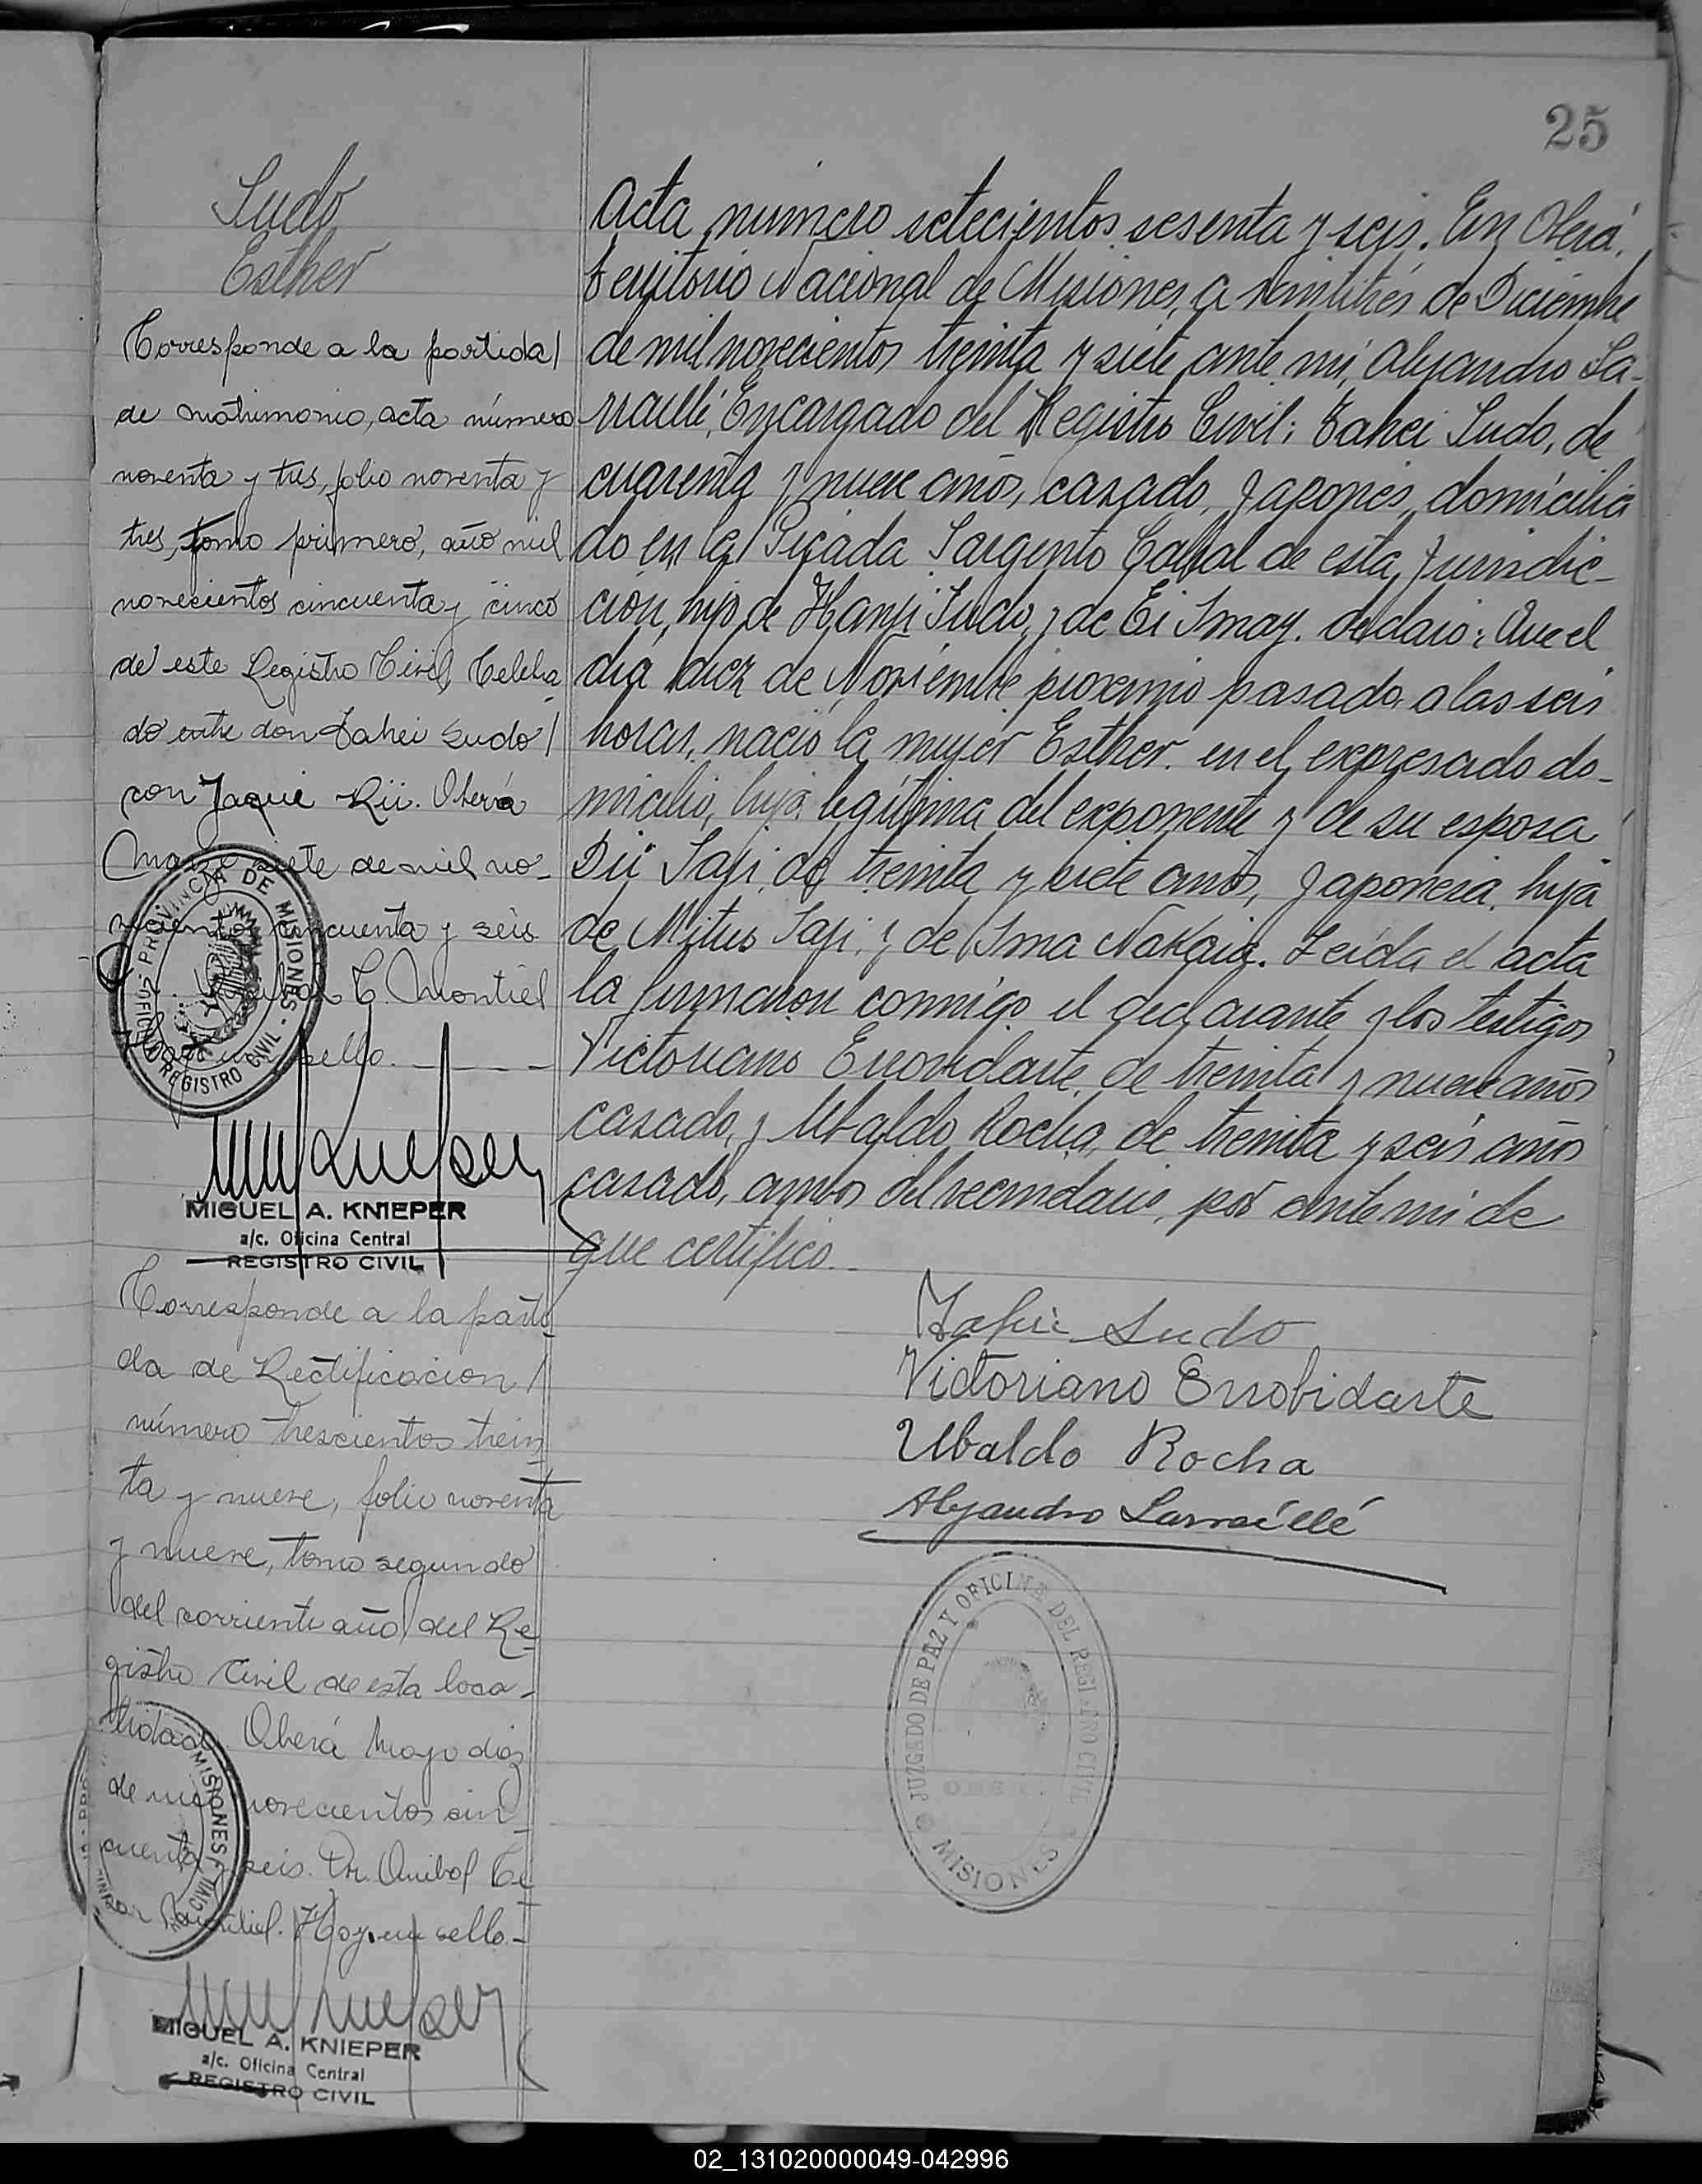 25
Sudo
Esther
Corresponde a la partida/
de matrimonio, acta número
noventa y tres, folio noventa y
tres, tomo primero, año mil
novecientos cincuenta y cinco
de este Registro Civil, Celebra
do entre don Tahei Sudo/
con Jaque Rii. Oberá
Marzo siete de mil no-
vecientos cincuenta y seis
C. Montiel
sello.
PROVINCIA DE MISIONES - REGISTRO CIVIL
MIGUEL A. KNIEPER
a/c. Oficina Central
REGISTRO CIVIL
Corresponde a la parti-
da de Rectificacion/
número trescientos trein
ta y nueve, folio noventa
y nueve, tomo segundo
del corriente año del Re
gistro Civil de esta loca-
lidad. Oberá Mayo diez
de mil novecientos cin-
cuenta y seis. Dr. Anibal Ce
sar Montiel. Hay un sello.-
MISIONES
CIVIL
MIGUEL A. KNIEPER
a/c. Oficina Central
REGISTRO CIVIL
Acta numero setecientos sesenta y seis. En Oberá,
territorio Nacional de Misiones, a veintitrés de Diciembre
de mil novecientos treinta y siete ante mi, Alejandro La-
rraillé, Encargado del Registro Civil; Tahei Sudo, de
cuarenta y nueve años, casado, Japonés, domicilia
do en la Picada Sargento Cabral de esta Jurisdic-
ción, hijo de Hanji Sudo, y de Ei Imay. declaró: Que el
día diez de Noviembre proximo pasado, a las seis
horas, nació la mujer Esther. en el expresado do-
micilio, hija legítima del exponente y de su esposa
Rii Saji, de treinta y siete años, Japonesa, hija
de Mitus Saji, y de Ima Nakaia. Leída el acta
la firmaron conmigo el declarante y los testigos
Victoriano Errobidarte, de treinta y nueve años
casado, y Ubaldo Rocha, de treinta y seis años
casado, ambos del vecindario, por ante mi de
que certifico.
Tahei Sudo
Victoriano Errobidarte
Ubaldo Rocha
Alejandro Larraillé
JUZGADO DE PAZ Y OFICINA DEL REGISTRO CIVIL
MISIONES
02_131020000049-042996